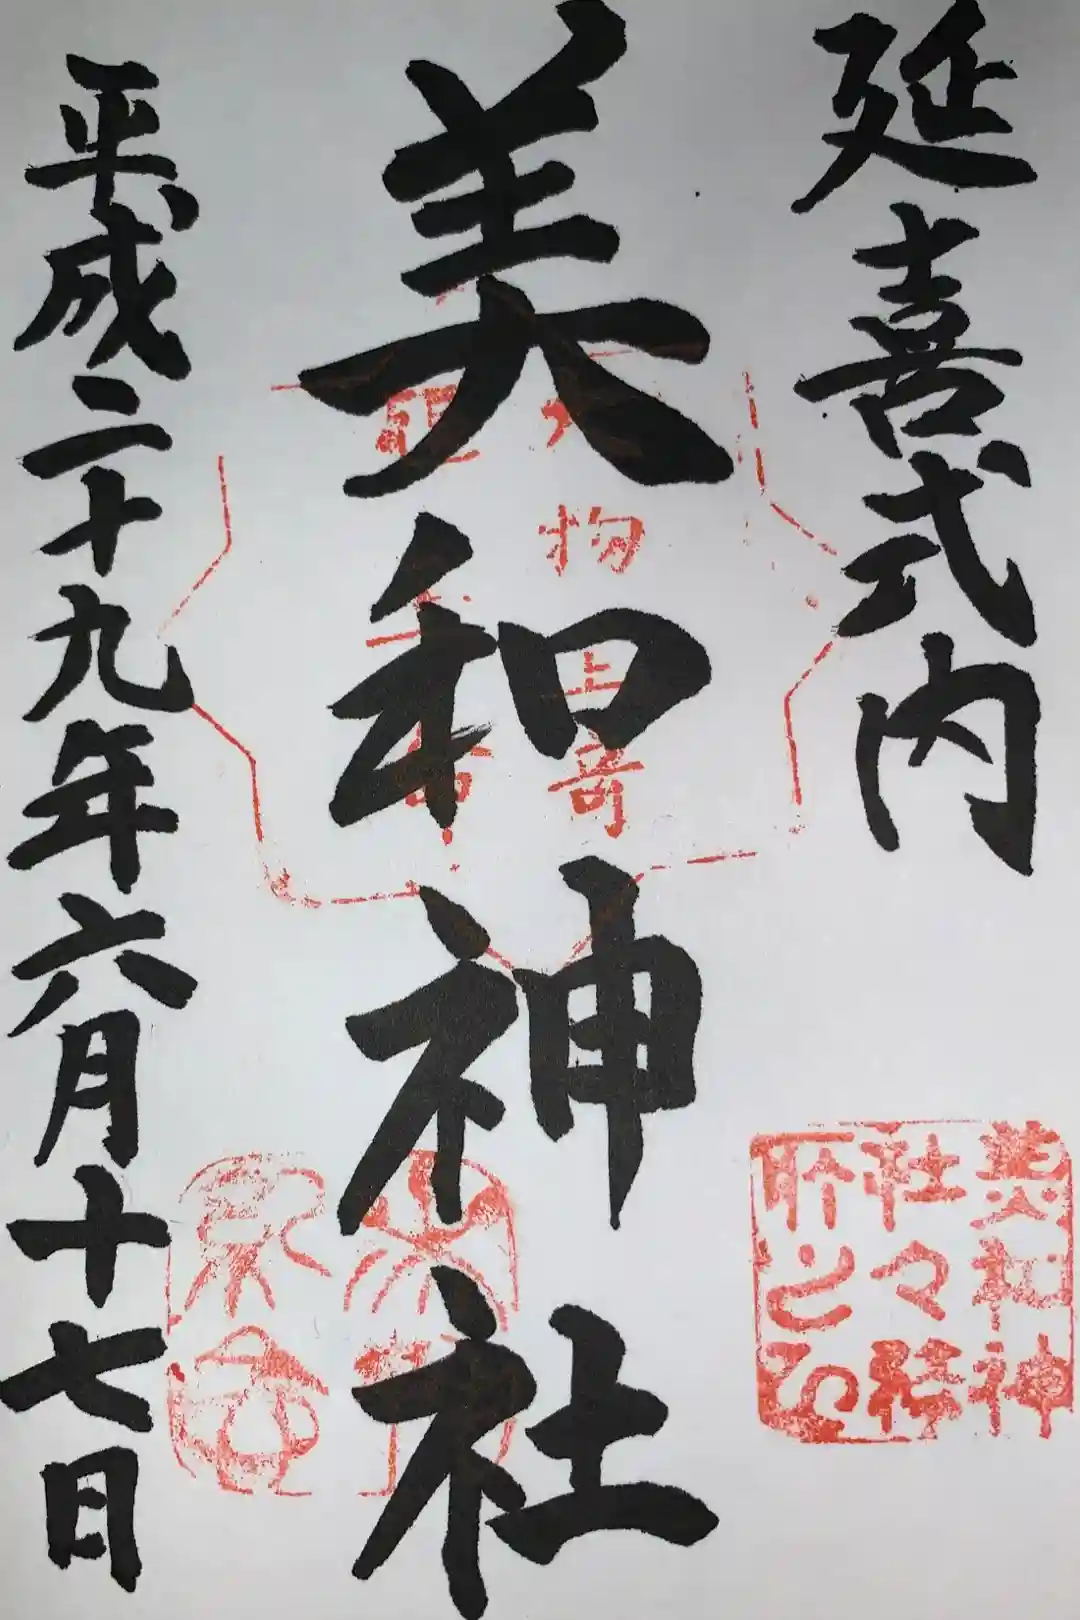 延喜式内
美和神社
平成二十九年六月十七日
物上部
美和神
社々務
所之印